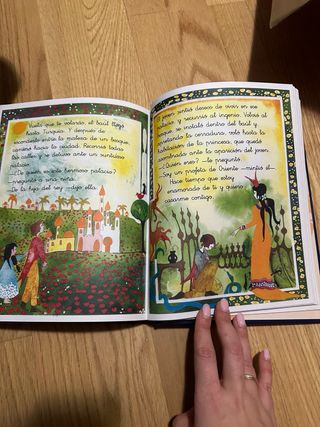 Vuela que te volarás, el baúl llegó
hasta Turquía. Y después de
esconderlo entre la maleza de un bosque
entró hacia la ciudad. Recorrió todas
las calles y se detuvo ante un suntuoso
—¿De quién es este hermoso palacio?—
preguntó a una niña.
—De la hija del rey —dijo ella.
El joven sintió deseos de vivir en ese
palacio, y recurrió al ingenio. Volvió al
bosque, se instaló dentro del baúl y
apretando la cerradura, voló hasta la
habitaciones de la princesa, que quedó
asombrada ante la aparición del joven.
—¿Quién eres? —le preguntó.
—Soy un profeta de Oriente —mintió él—.
Hace tiempo que estoy
enamorado de ti y quiero
casarme contigo.